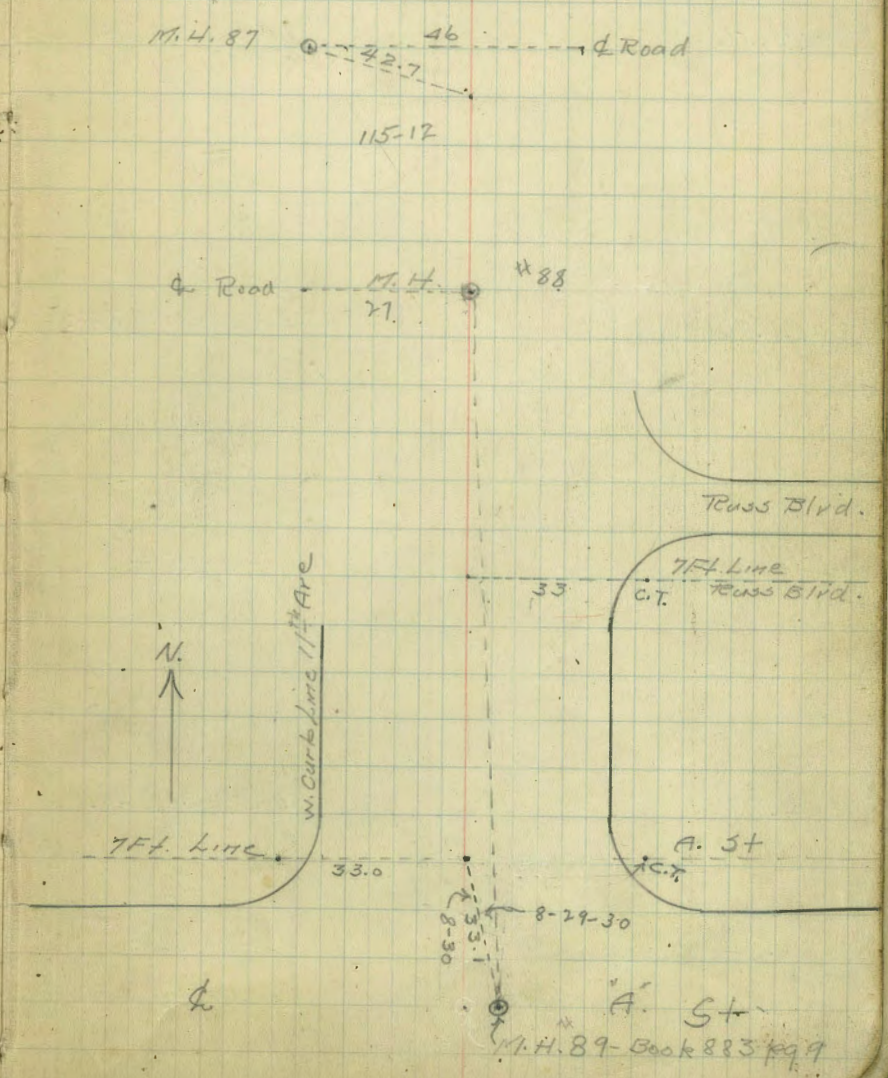 M.H. 87
46
℄ Road
42.7
115-12
℄ Road
M.H.
#88
27.
Russ Blvd.
7Ft. Line
33
C.T.
Russ Blvd.
W. Curb Line 11th Ave
N.
7Ft. Line
33.0
A. St
C.T.
33.1
8-30
8-29-30
℄
"A" St
M.H. #89-Book 883 pg 9